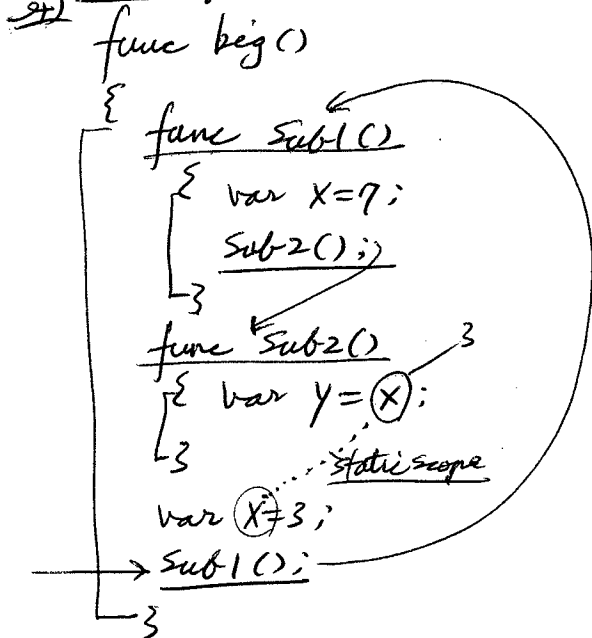 ex)
func big()
{
func sub1()
{ var x=7;
sub2();
}
func sub2()
3
{ var y = x;
}
static scope
var x=3;
sub1();
}